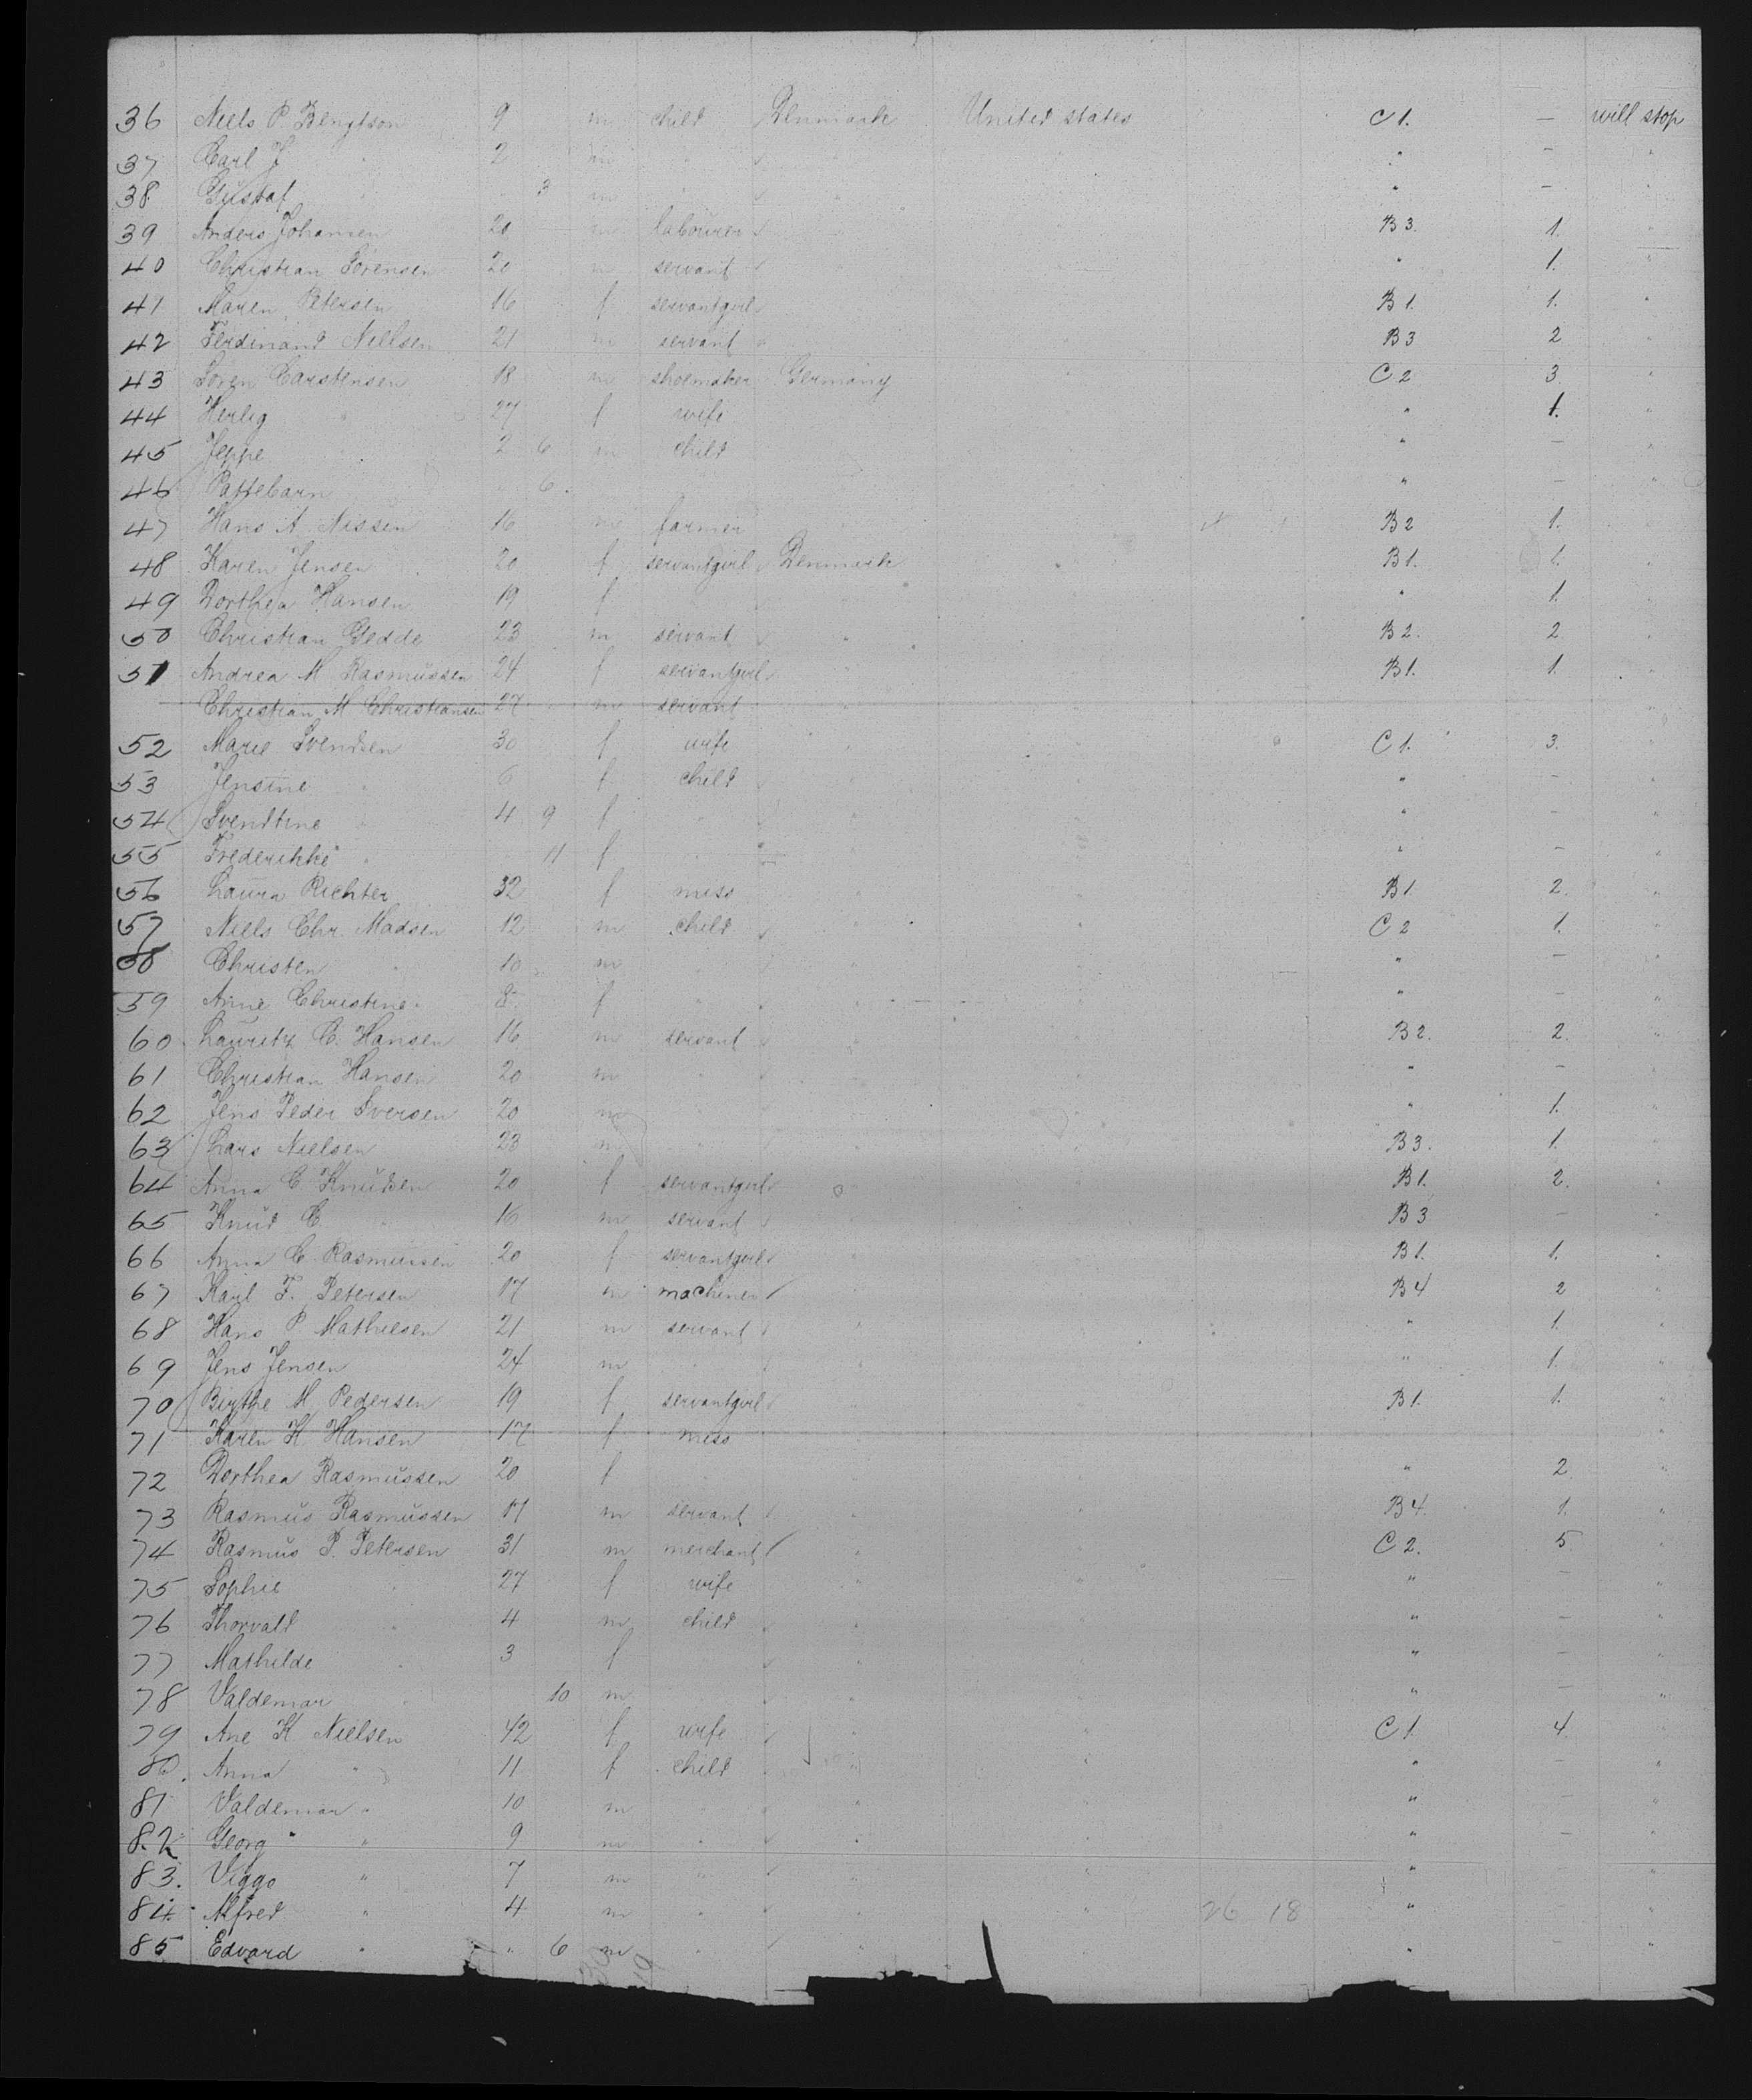 36 Niels P. Bengtson 9 m child Denmark United states C 1. — will stop
37 Carl J " 2 m " " — "
38 Gustaf 3 m " " — "
39 Anders Johansen 20 m labourer B 3. 1. "
40 Christian Sörensen 20 m servant " 1. "
41 Maren Petersen 16 f servantgirl B 1. 1. "
42 Ferdinand Nielsen 21 m servant B 3 2 "
43 Sören Carstensen 18 m shoemaker Germany C 2 3 "
44 Herlig " 27 f wife " 1. "
45 Jeppe " 2 6 m child " — "
46 Pattebarn 6. " — "
47 Hans A. Nissen 16 m farmer B 2 1. "
48 Karen Jensen 20 f servantgirl Denmark B 1. 1. "
49 Dorthea Hansen 19 f " " 1. "
50 Christian Gedde 23 m servant " B 2. 2 "
51 Andrea M Rasmussen 24 f servantgirl " B 1. 1. "
Christian M Christiansen 27 m servant "
52 Marie Svendsen 30 f wife " C 1. 3. "
53 Jensine " 6 f child " — "
54 Svendtine " 4 9 f " " — "
55 Frederikke " 11 f " " — "
56 Laura Richter 32 f miss " B 1. 2. "
57 Niels Chr. Madsen 12 m child " C 2 1. "
58 Christen " 10 m " " — "
59 Anne Christine " 8 f " " — "
60 Lauritz C. Hansen 16 m servant " B 2. 2. "
61 Christian Hansen 20 m " " — "
62 Jens Peder Iversen 20 m " " 1. "
63 Lars Nielsen 23 m " B 3. 1. "
64 Anna C. Knudsen 20 f servantgirl " B 1. 2. "
65 Knud C. " 16 m servant B 3 — "
66 Anna C. Rasmussen 20 f servantgirl " B 1. 1. "
67 Karl F. Petersen 17 m machiner " B 4 2 "
68 Hans P. Mathiesen 21 m servant " " 1. "
69 Jens Jensen 24 m " " " 1. "
70 Birthe M. Pedersen 19 f servantgirl B 1. 1. "
71 Karen K Hansen 17 f miss "
72 Dorthea Rasmussen 20 f " " 2 "
73 Rasmus Rasmussen 17 m servant " " B 4. 1. "
74 Rasmus P. Petersen 31 m merchant " " C 2. 5. "
75 Sophie " 27 f wife " " " — "
76 Thorvald " 4 m child " " " — "
77 Mathilde " 3 f " " " — "
78 Valdemar " 10 m " " " — "
79 Ane K Nielsen 42 f wife " " C 1. 4. "
80. Anna " 11 f child " " " — "
81 Valdemar " 10 m " " " — "
82 Georg " 9 m " " " " — "
83. Viggo " 7 m " " " " "
84. Alfred " 4 m " " " 26 18 " — "
85 Edvard " " 6 m " " " " — "